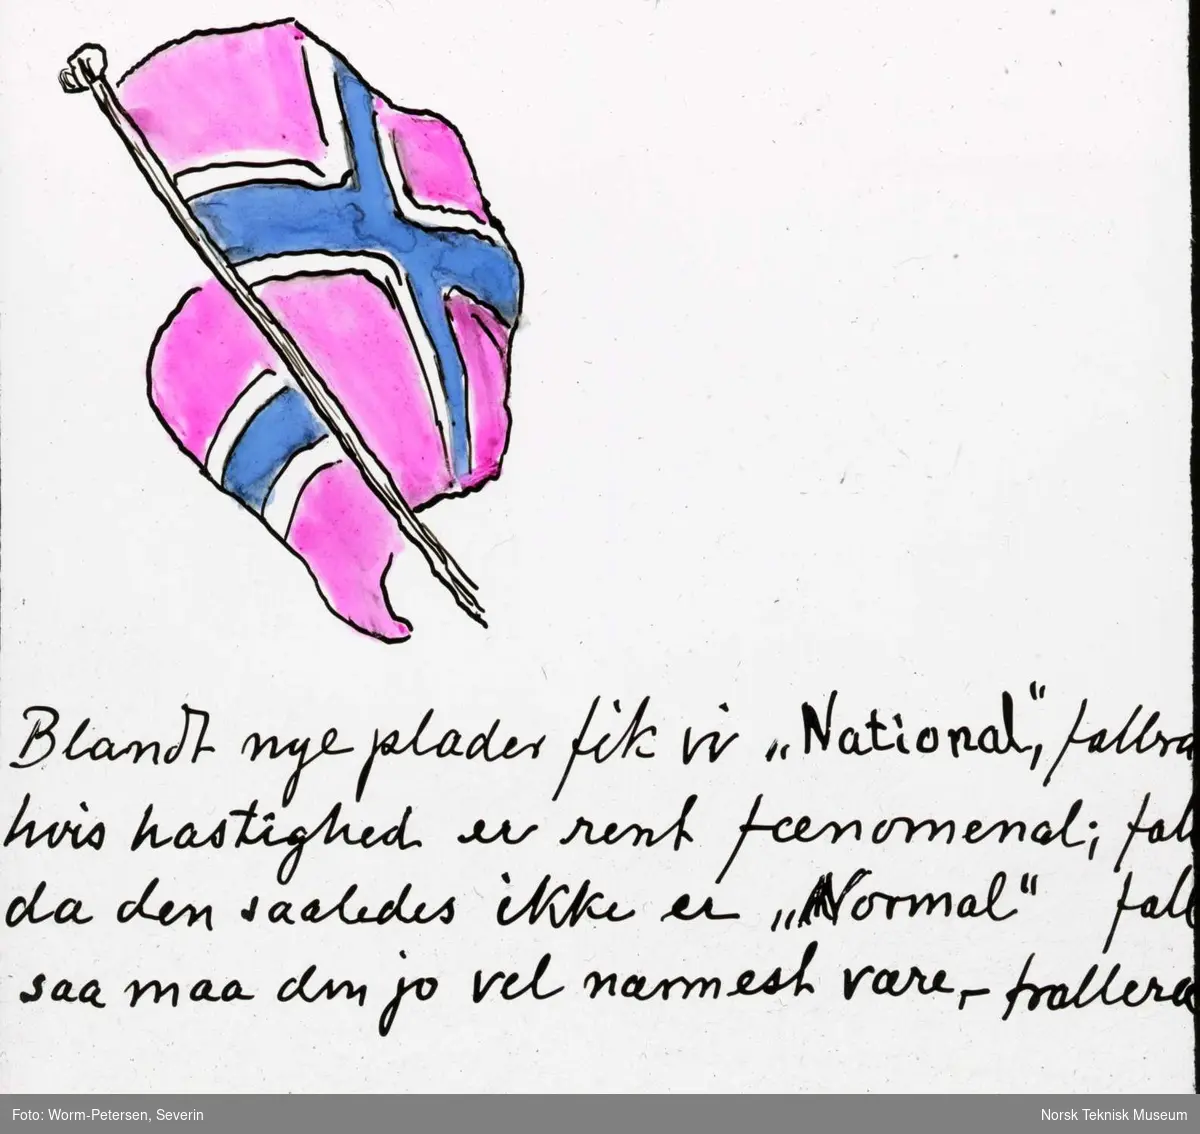 Blandt nye plader fik vi „National", fallera
hvis hastighed er rent fænomenal; fall
da den saaledes ikke er „Normal" fall
saa maa den jo vel nærmest være,- fallera
Foto: Worm-Petersen, Severin
Norsk Teknisk Museum